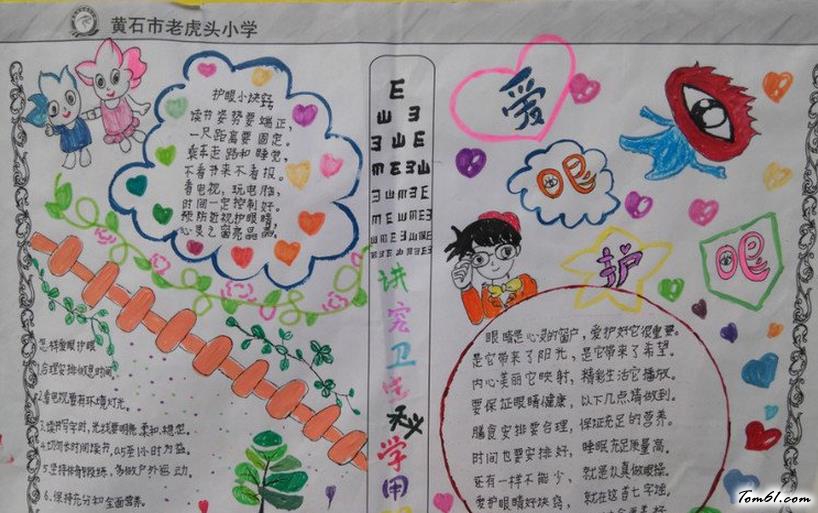 黄石市老虎头小学
护眼小诀窍
读书姿势要端正，
一尺距离要固定。
乘车走路和睡觉，
不看书来不看报。
看电视，玩电脑，
时间一定控制好。
预防近视护眼睛，
心灵之窗亮晶晶。
怎样爱眼护眼
1.合理安排作息时间
2.看电视要有环境灯光。
3.读书写字时，光线要明亮，柔和，
4.切勿长时间读书，0.5至1小时为益。
5.坚持体育锻炼，多做户外运动。
6.保持充分和全面营养。
E
讲
究
卫
生
科
学
用
爱
眼
护
眼
眼睛是心灵的窗户，爱护好它很重要。
是它带来了阳光，是它带来了希望。
内心美丽它映射，精彩生活它播放。
要保证眼睛健康，以下几点请做到。
膳食安排要合理，保证充足的营养。
时间也要安排好，睡眠充足质量高。
还有一样不能少，就是认真做眼操。
爱护眼睛好诀窍，就在这首七字谣。
Tom61.com